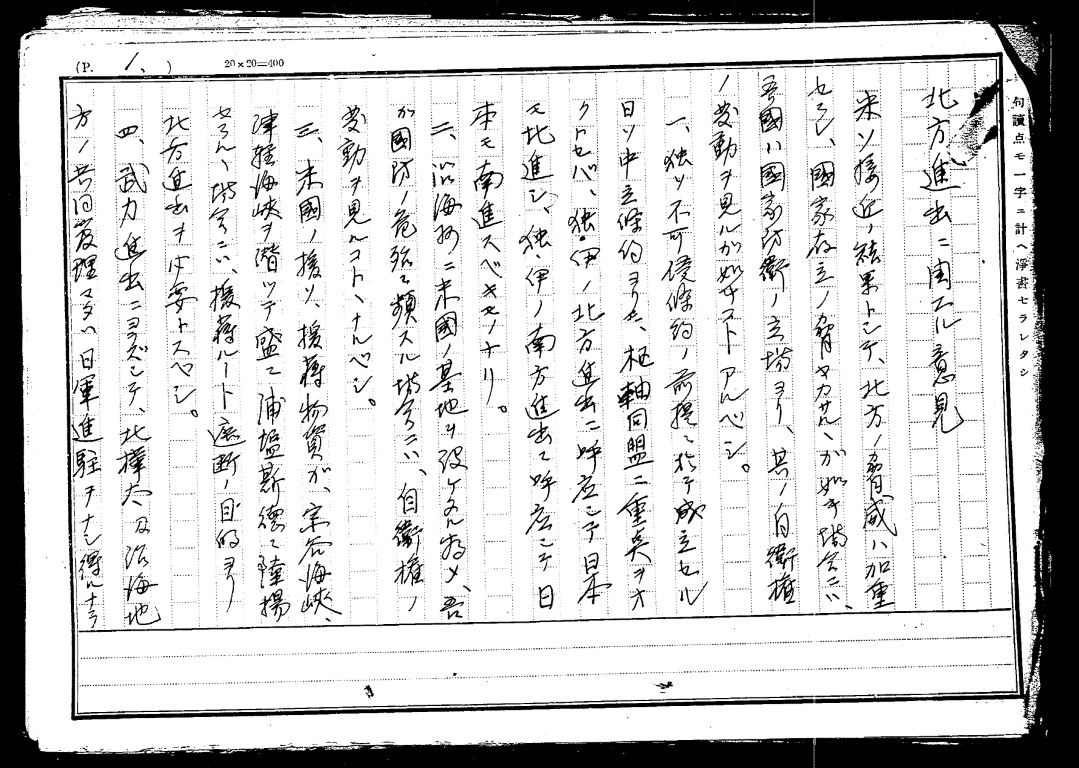 (P. 1. )
20×20=400
句讀点モ一字ニ計ヘ淨書セラレタシ
北方進出ニ関スル意見
米ソ接近ノ結果トシテ、北方ノ脅威ハ加重
セラレ、國家存立ノ脅ヤカサルヽガ如キ場合ニハ、
吾國ハ國家防衛ノ立場ヨリ、其ノ自衛権
ノ発動ヲ見ルガ如キコトアルベシ。
一、独ソ不可侵條約ノ前提ニ於テ成立セル
日ソ中立條約ヨリモ、枢軸同盟ニ重奌ヲオ
クトセバ、独・伊ノ北方進出ニ呼応シテ日本
モ北進シ、独・伊ノ南方進出ニ呼応シテ日
本モ南進スベキモノナリ。
二、沿海州ニ米國ノ基地ヲ設ケタル為メ、吾
ガ國防ノ危殆ニ頻スル場合ニハ、自衛権ノ
発動ヲ見ルコトヽナルベシ。
三、米國ノ援ソ、援蒋物資ガ、宗谷海峡、
津軽海峡ヲ潜ッテ盛ニ浦塩斯徳ニ陸揚
セラルヽ場合ニハ、援蒋ルート遮断ノ目的ヨリ
北方進出ヲ必要トスベシ。
四、武力進出ニヨラズシテ、北樺太及沿海地
方ノ共同管理マタハ日軍進駐ヲナシ得ルナラ